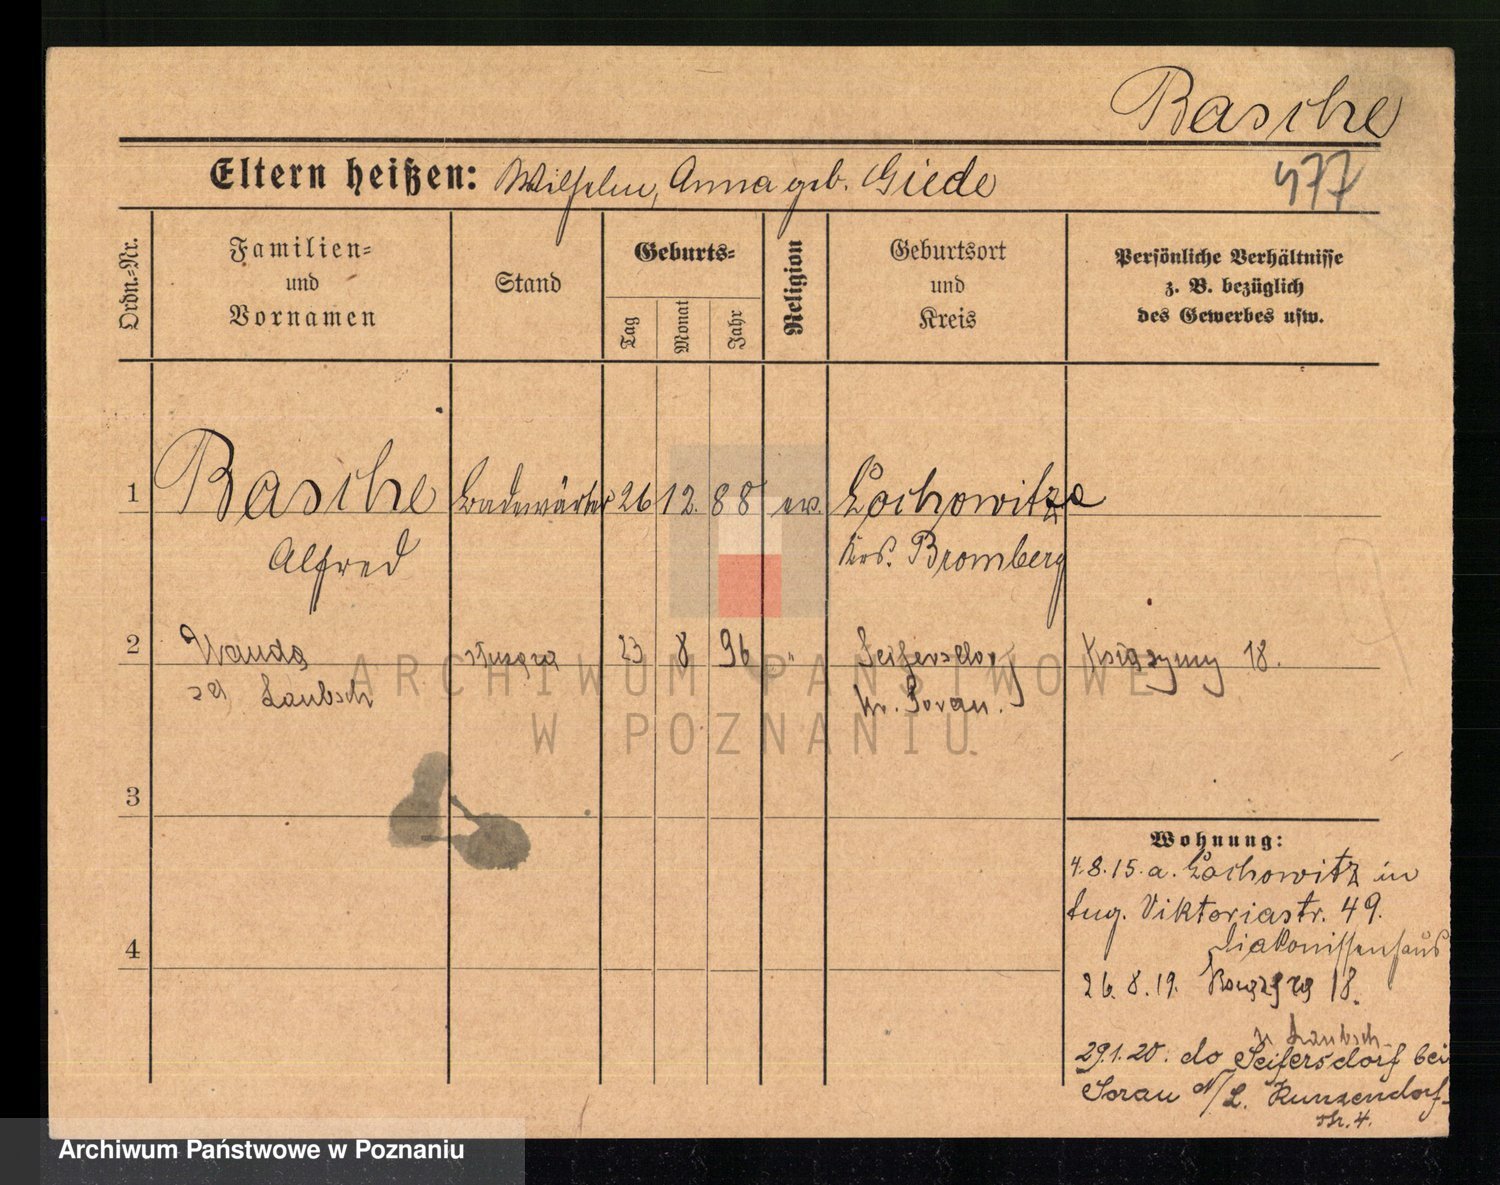 Basche
Eltern heißen: Wilhelm, Anna geb. Giede
477
Ordn.-Nr.
Familien-
und
Vornamen
Stand
Geburts-
Tag
Monat
Jahr
Religion
Geburtsort
und
Kreis
Persönliche Verhältnisse
z. B. bezüglich
des Gewerbes usw.
1 Basche Badewärter 26 12. 88 ev. Lochowitz
Alfred Krs. Bromberg
2 Wanda 23 8 96 " Seifersdorf 18.
Laubsch Kr. Sorau.
3
Wohnung:
4.8.15. a. Lochowitz in
Aug. Viktoriastr. 49.
Diakonissenhaus
4
26.8.19. 18.
Laubsch
29.1.20. do Seifersdorf bei
Sorau N/L. Kunzendorf-
str. 4.
ARCHIWUM PAŃSTWOWE
W POZNANIU
Archiwum Państwowe w Poznaniu